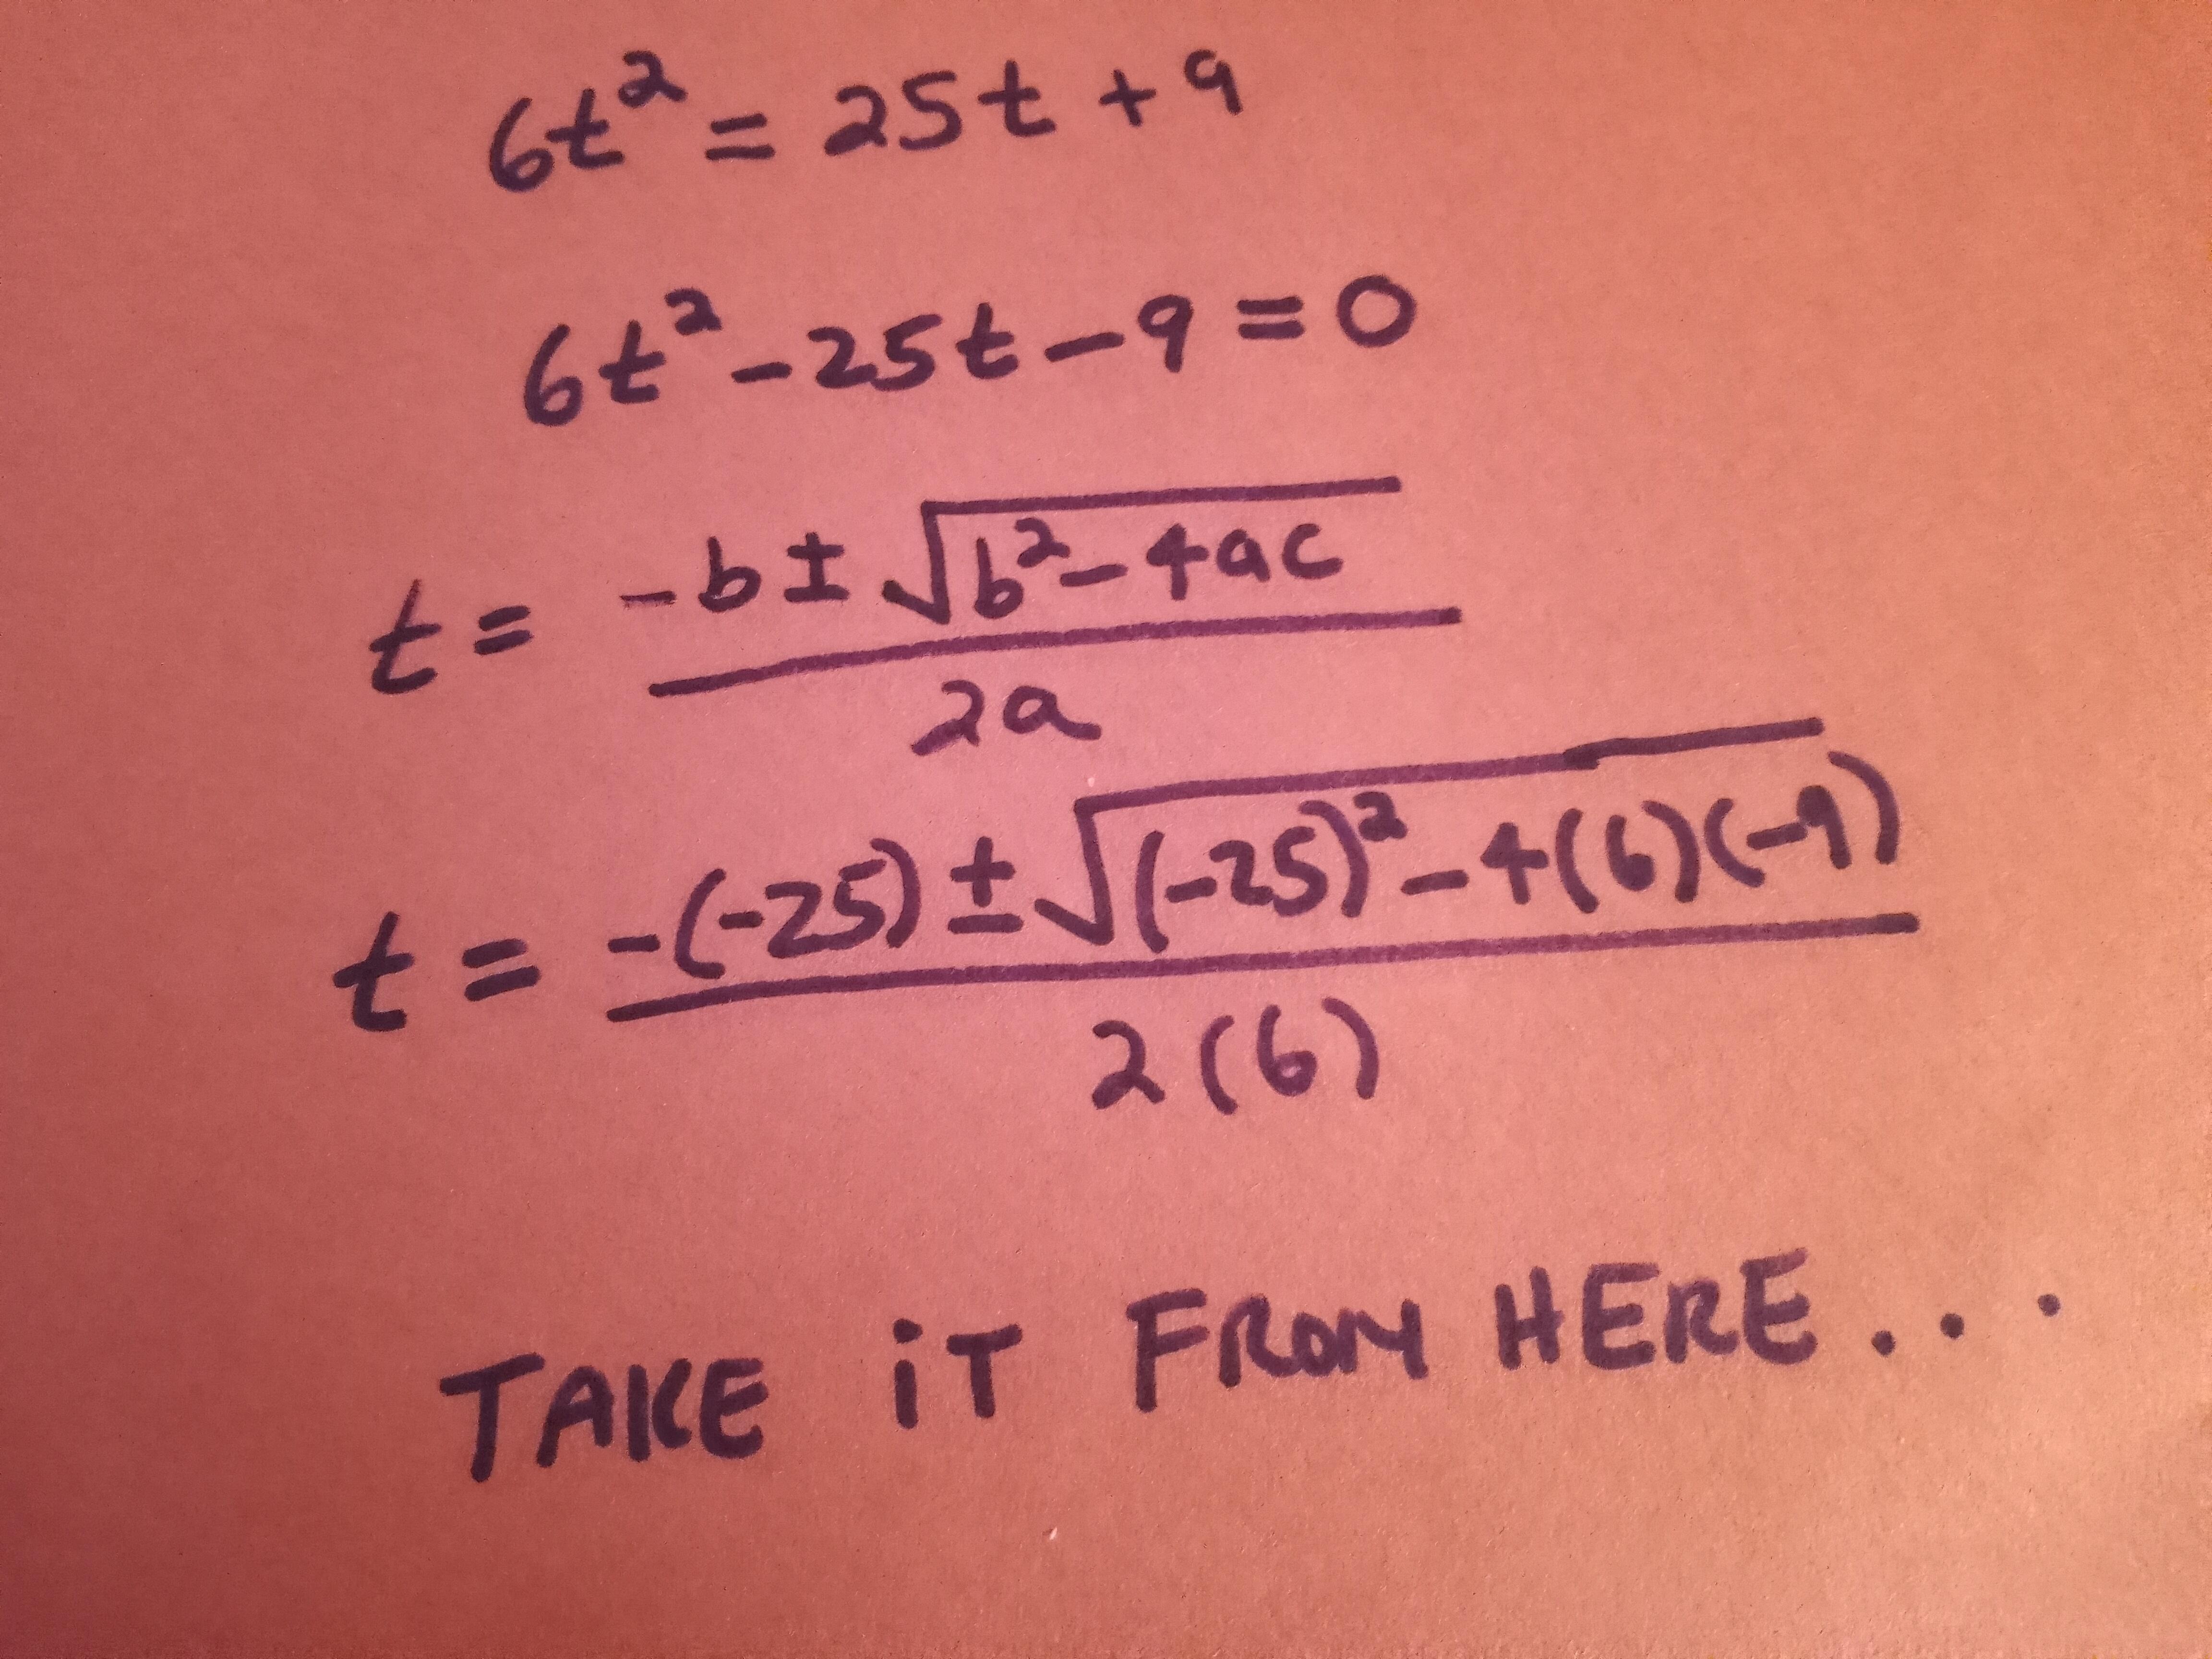 6t² = 25t + 9
6t² - 25t - 9 = 0
t = (-b ± √(b² - 4ac)) / 2a
t = (-(-25) ± √((-25)² - 4(6)(-9))) / 2(6)
TAKE iT FROM HERE...